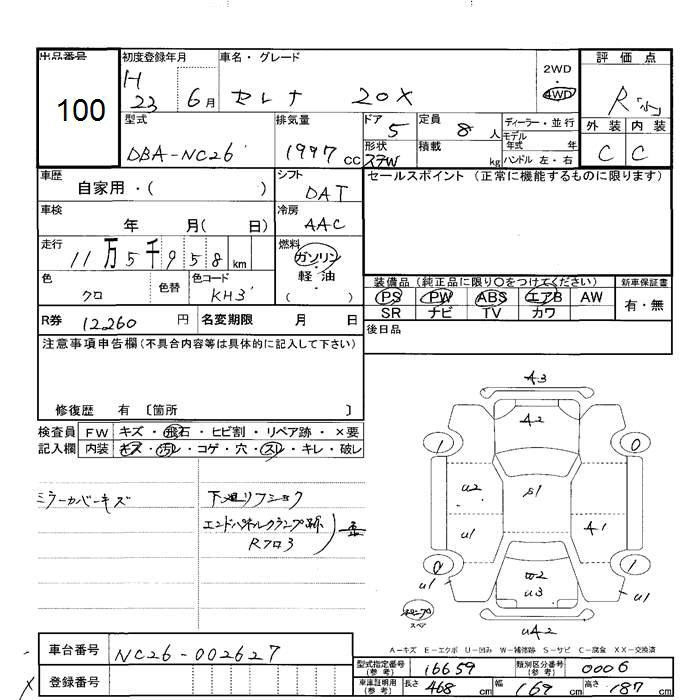 出品番号
100
初度登録年月
H
23 6月
車名・グレード
セレナ 20X
2WD
・
4WD
評価点
R
外装 内装
C C
型式
DBA-NC26
排気量
1997 cc
ドア
5
定員
8 人
ディーラー・並行
モデル
年式 年
形状
STW
積載
kg
ハンドル 左・右
車歴
自家用・( )
シフト
DAT
セールスポイント (正常に機能するものに限ります)
車検
年 月( 日)
冷房
AAC
走行
11万5千958km
燃料
ガソリン
・
軽油
( )
色
クロ
色替
色コード
KH3
装備品(純正品に限り○をつけてください)
PS PW ABS エアB AW
SR ナビ TV カワ
新車保証書
有・無
R券 12,260 円
名変期限 月 日
後日品
注意事項申告欄(不具合内容等は具体的に記入して下さい)
修復歴 有 〔箇所 〕
検査員
記入欄
FW キズ・飛石・ヒビ割・リペア跡・×要
内装 キズ・汚レ・コゲ・穴・スレ・キレ・破レ
ミラーカバーキズ
下廻リフショク
エンドパネルクランプ跡
Rフロ3
歪
A3
A2
1
0
U2
S1
U1
A1
0
1
U1
W2
U3
U1
スペア
UA2
A−キズ E−エクボ U−凹み W−補修跡 S−サビ C−腐食 XX−交換済
車台番号 NC26-002627
登録番号
型式指定番号
(参考)
16659
類別区分番号
(参考)
0006
車庫証明用
(参考)
長さ 468 cm 幅 169 cm 高さ 187 cm